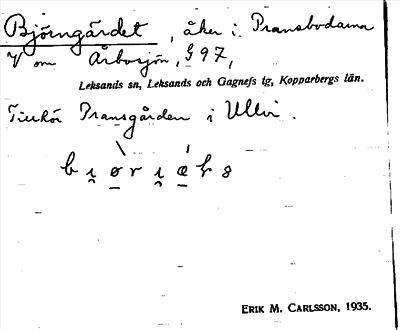 Björngärdet, åker i Pransbodarna
V om Årbosjön, § 97,
Leksands sn, Leksands och Gagnefs tg, Kopparbergs län.
Tillhör Pransgården i Ullvi.
ERIK M. CARLSSON, 1935.